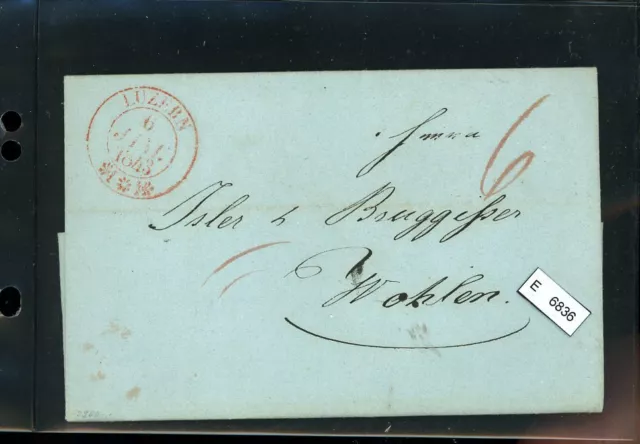 LUZERN
6
1848
Herrn
6
Isler & Bruggisser
Wohlen.
E 6836